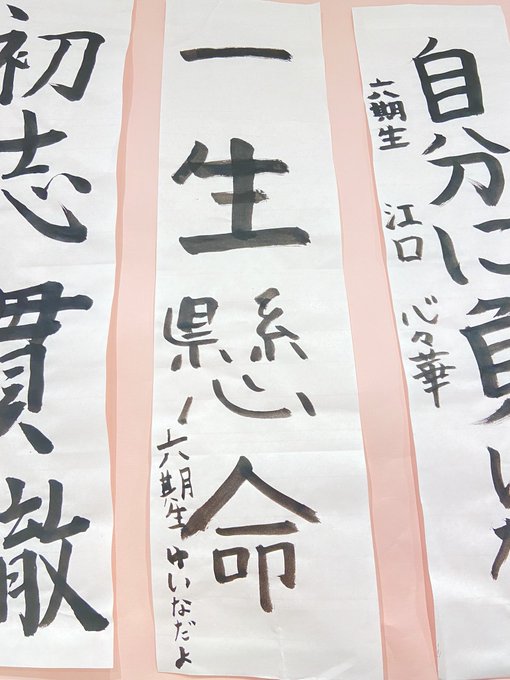 自分に負
六期生 江口 心々華
一生懸命
六期生 ゆいなだよ
初志貫徹